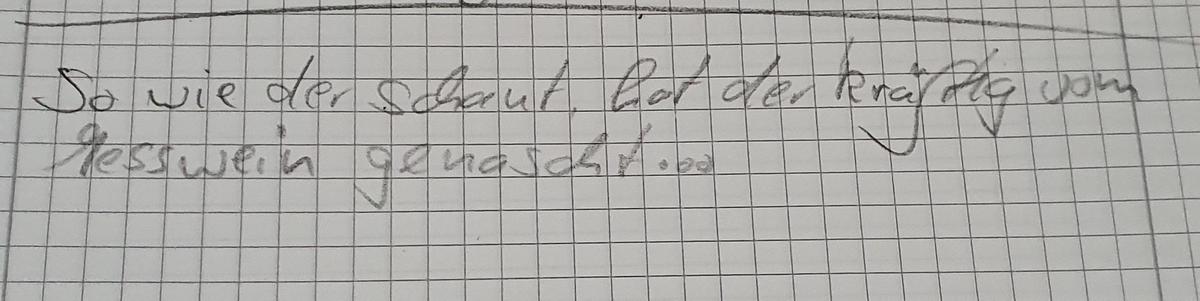 So wie der schaut, hat der kräftig vom
Messwein genascht...